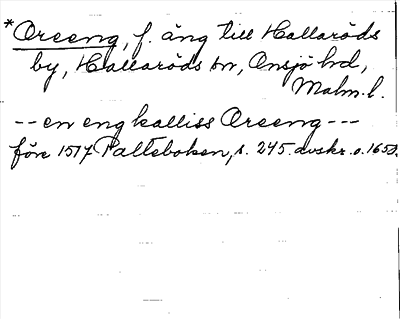 *Oreeng, f. äng till Hallaröds
by, Hallaröds sn, Onsjö hd,
Malm. l.
-- en eng kalliss Oreeng ---
före 1517 Palteboken, s. 245. avskr. o. 1650.